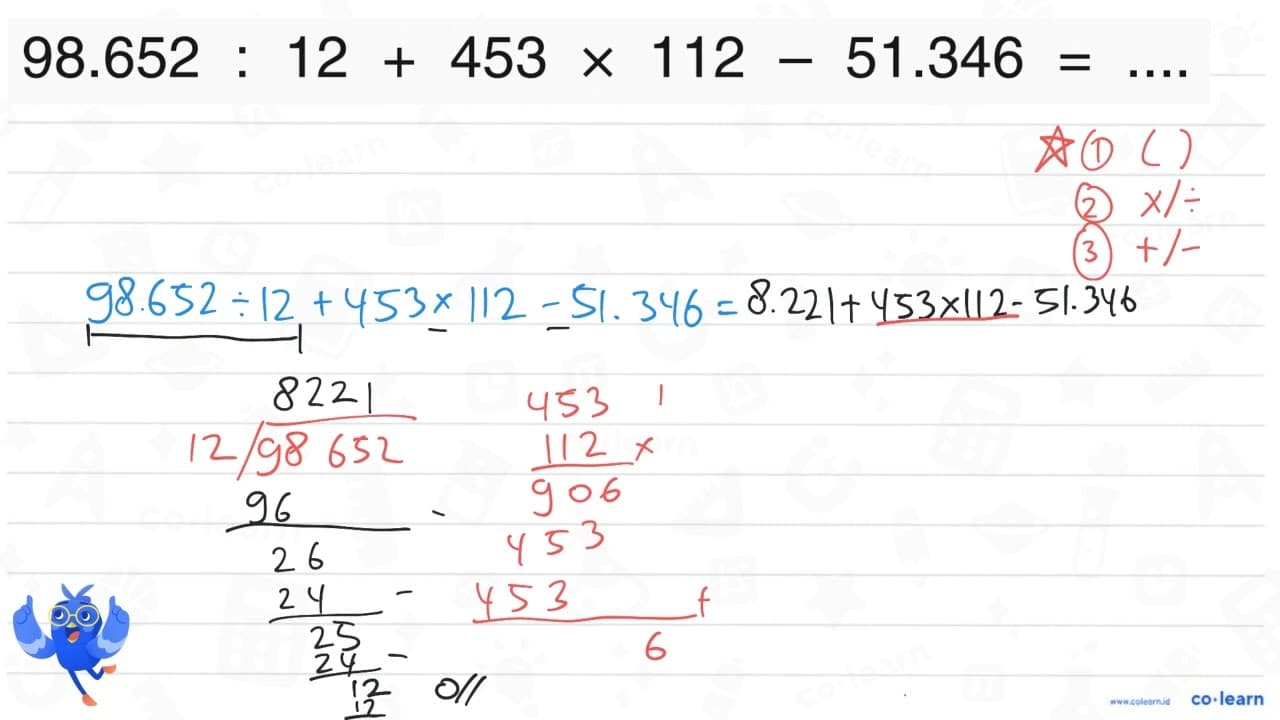 98.652 : 12 + 453 × 112 – 51.346 = ....
① ( )
② ×/÷
③ +/-
98.652 ÷ 12 + 453 × 112 - 51.346 = 8.221 + 453×112 - 51.346
8221
12/98 652
96 -
26
24 -
25
24 -
12
12
0//
453 1
112 ×
906
453
453 +
6
www.colearn.id co·learn